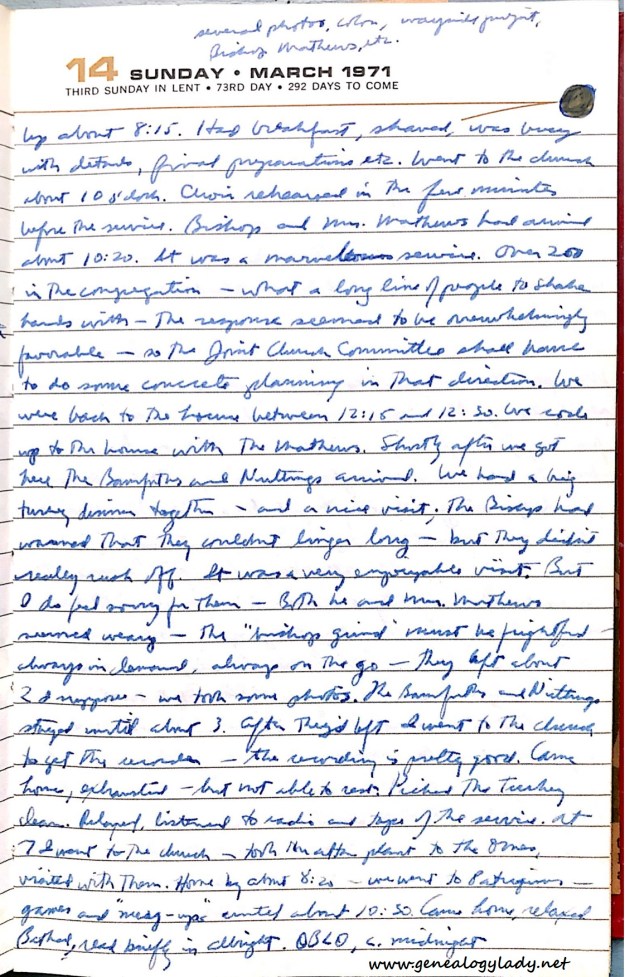 several photos, color, wayside pulpit,
Bishop Mathews, etc.
14 SUNDAY • MARCH 1971
THIRD SUNDAY IN LENT • 73RD DAY • 292 DAYS TO COME
Up about 8:15. Had breakfast, shaved, was busy
with details, final preparations etc. Went to the church
about 10 o'clock. Choir rehearsed in the few minutes
before the service. Bishop and Mrs. Mathews had arrived
about 10:20. It was a marvelous service. Over 200
in the congregation — what a long line of people to shake
hands with — The response seemed to be overwhelmingly
favorable — so the Joint Church Committee shall have
to do some concrete planning in that direction. We
were back to the house between 12:15 and 12:30. We rode
up to the house with the Mathews. Shortly after we got
here the Bamfths and Nuttings arrived. We had a big
turkey dinner together — and a nice visit. The Bishop had
warned that they couldn't linger long — but they didn't
really rush off. It was a very enjoyable visit. But
I do feel sorry for them — Both he and Mrs. Mathews
seemed weary — the "bishops grind" must be frightful —
always in demand, always on the go — They left about
2 I suppose — we took some photos. The and Nuttings
stayed until about 3. After they'd left I went to the church
to get the recorder — the recording is pretty good. Came
home, exhausted — but not able to rest. Picked the Turkey
clean. Relaxed, listened to radio and tape of the service. At
7 I went to the church — took an plant to the
visited with them. Home by about 8:20 — we went to —
games and "until about 10:30. Came home, relaxed
Bathed, read briefly in Albright. OBLO, c. midnight
www.genealogylady.net